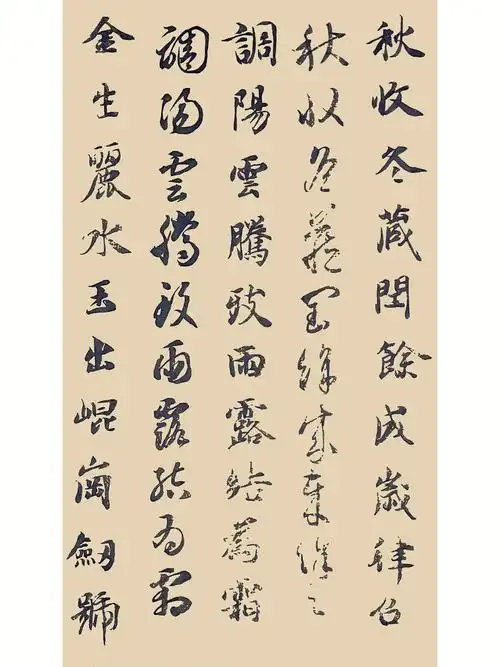 秋收冬藏閏餘成歲律召
秋收冬藏閏餘成歲律召
調陽雲騰致雨露結爲霜
調陽雲騰致雨露結為霜
金生麗水玉出崐崗劒號